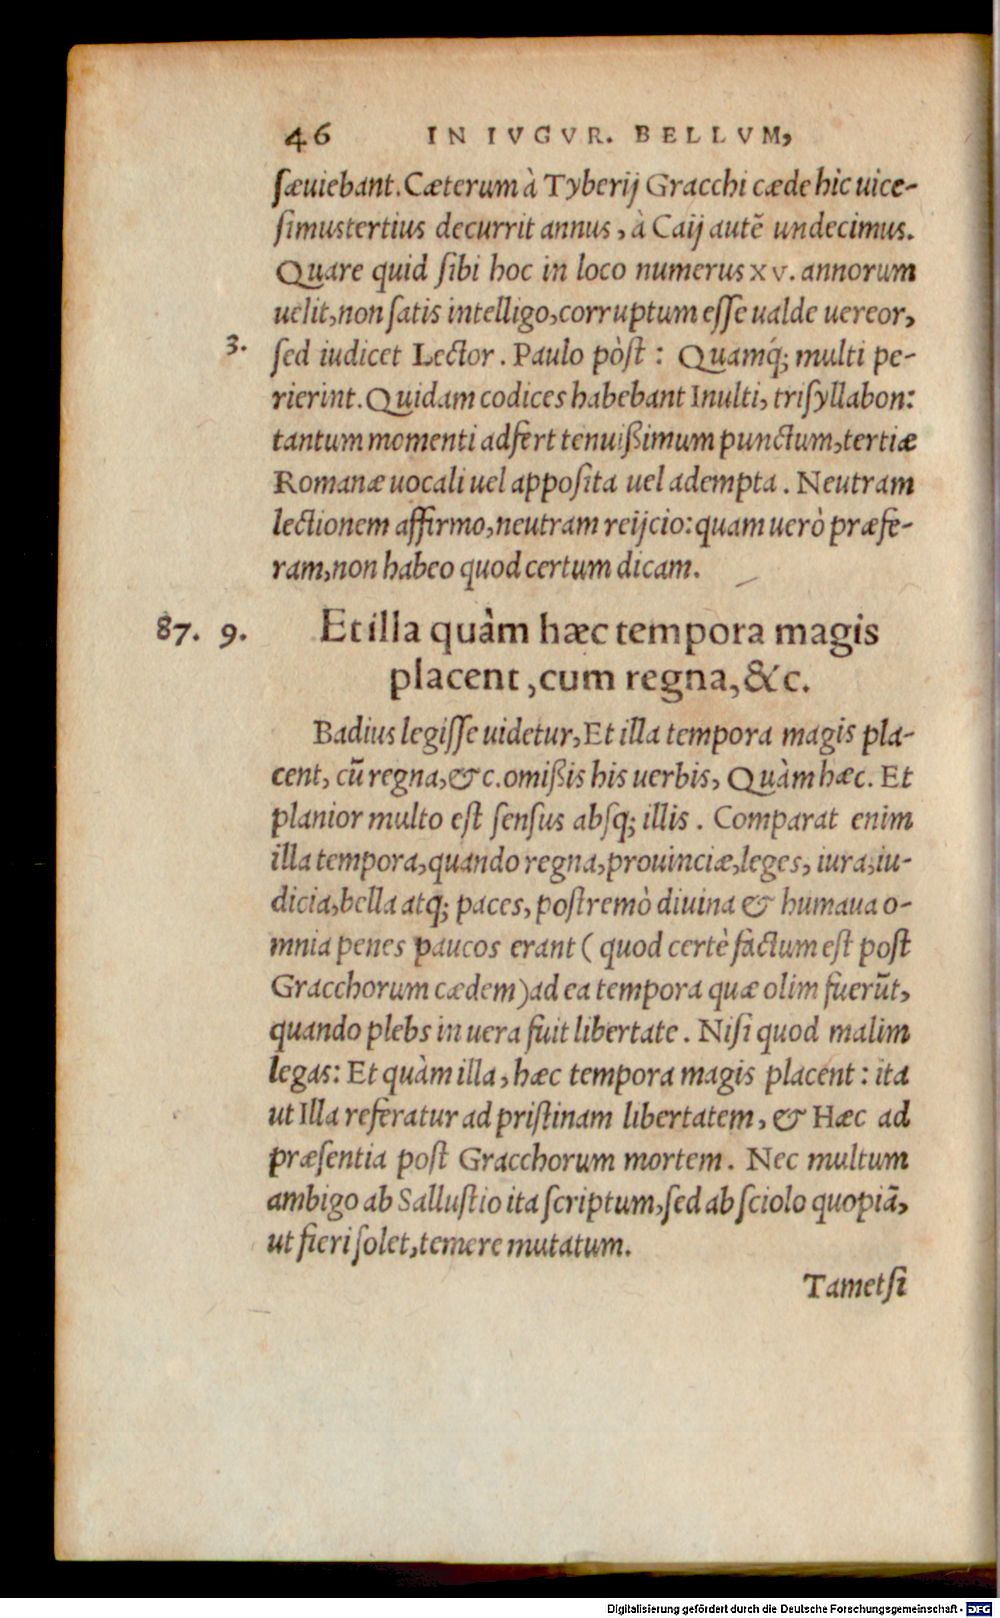 46 IN IVGVR. BELLVM,
sæuiebant. Cæterum à Tyberij Gracchi cæde hic uice-
simustertius decurrit annus, à Caij autẽ undecimus.
Quare quid sibi hoc in loco numerus xv. annorum
uelit, non satis intelligo, corruptum esse ualde uereor,
3. sed iudicet Lector. Paulo pòst: Quamq́; multi pe-
rierint. Quidam codices habebant Inulti, trisyllabon:
tantum momenti adfert tenuißimum punctum, tertiæ
Romanæ uocali uel apposita uel adempta. Neutram
lectionem affirmo, neutram reijcio: quam uerò præfe-
ram, non habeo quod certum dicam.
87. 9. Et illa quàm hæc tempora magis
placent, cum regna, &c.
Badius legisse uidetur, Et illa tempora magis pla-
cent, cũ regna, &c. omißis his uerbis, Quàm hæc. Et
planior multo est sensus absq; illis. Comparat enim
illa tempora, quando regna, prouinciæ, leges, iura, iu-
dicia, bella atq; paces, postremò diuina & humaua o-
mnia penes paucos erant (quod certè factum est post
Gracchorum cædem) ad ea tempora quæ olim fuerũt,
quando plebs in uera fuit libertate. Nisi quod malim
legas: Et quàm illa, hæc tempora magis placent: ita
ut Illa referatur ad pristinam libertatem, & Hæc ad
præsentia post Gracchorum mortem. Nec multum
ambigo ab Sallustio ita scriptum, sed ab sciolo quopiã,
ut fieri solet, temere mutatum.
Tametsi
Digitalisierung gefördert durch die Deutsche Forschungsgemeinschaft - DFG